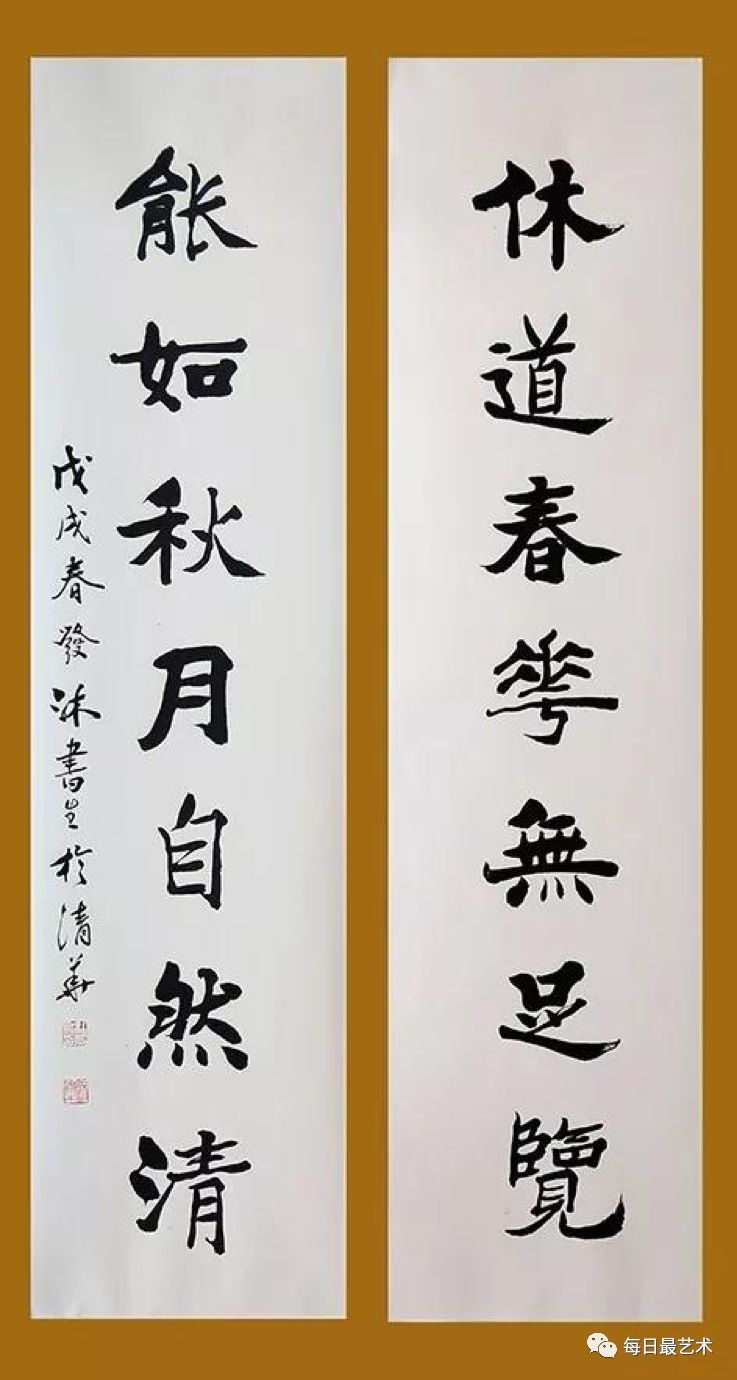 休道春花無足覽
能如秋月自然清
戊戌春發沐書生於清華
每日最艺术